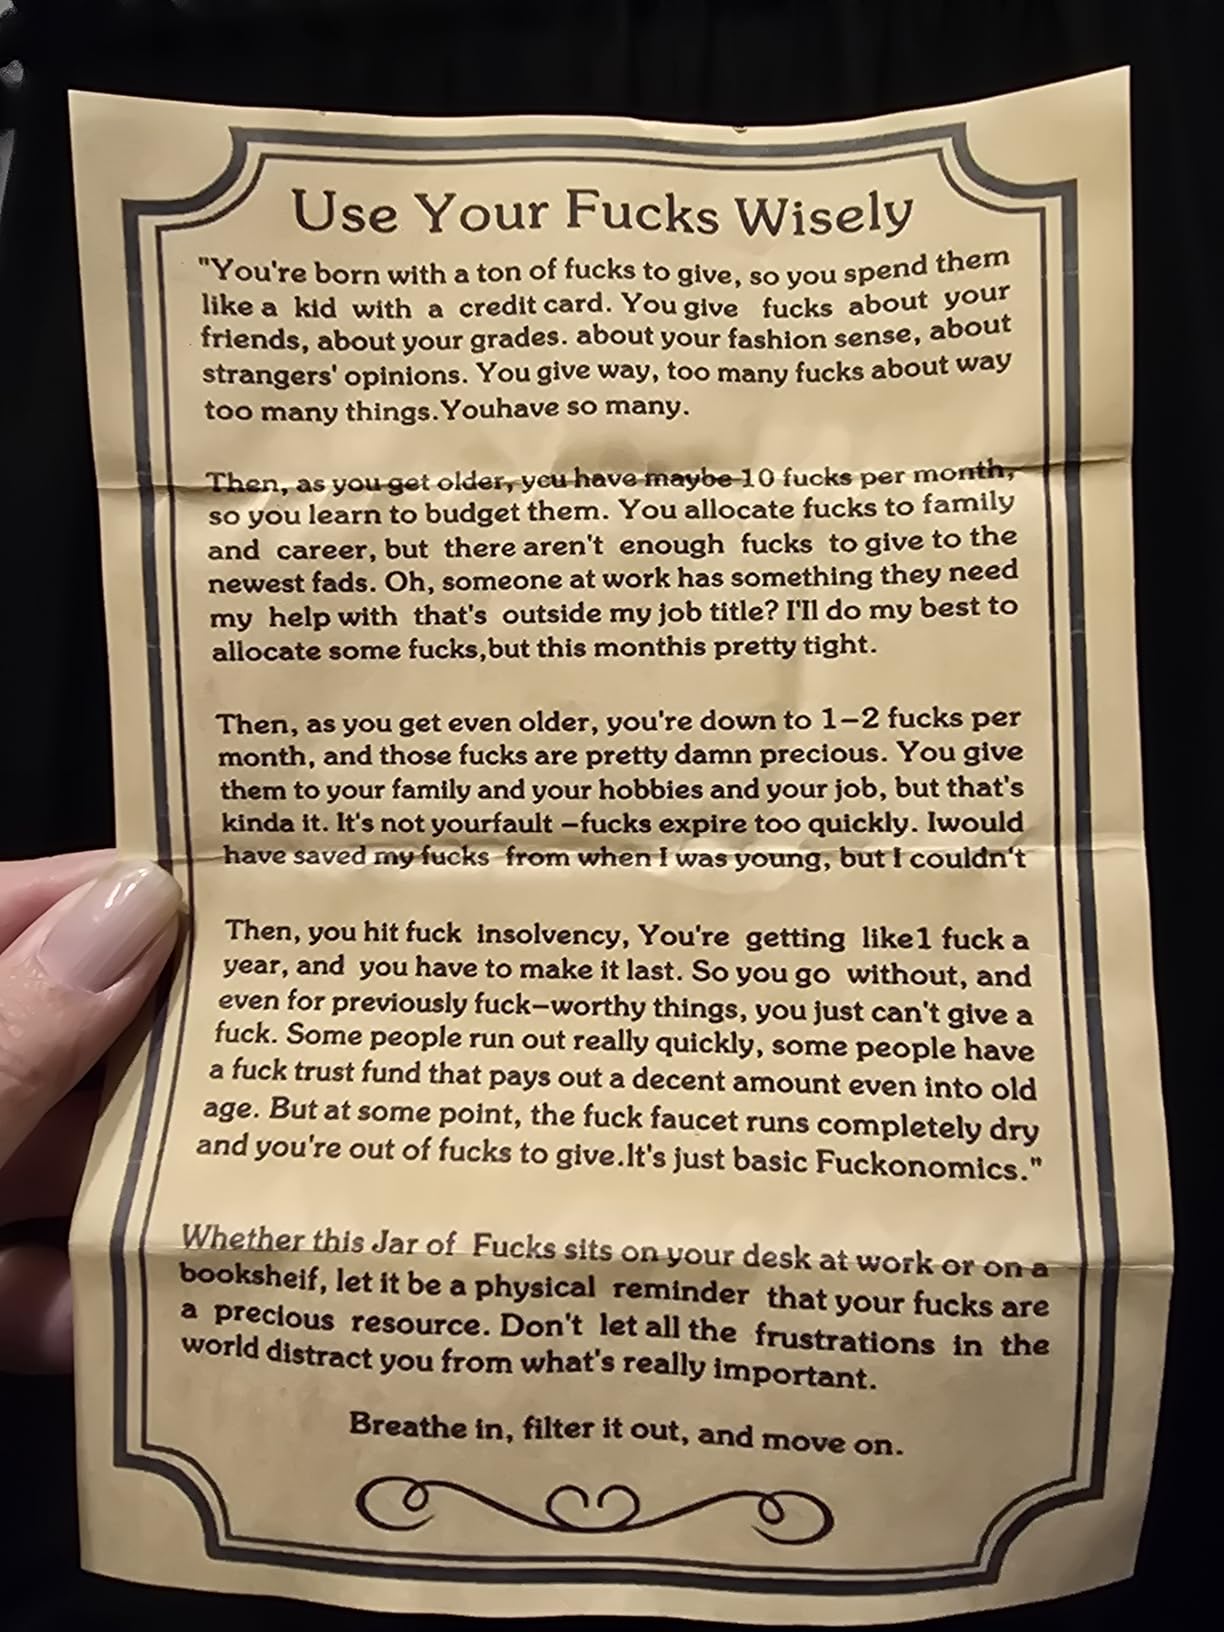 Use Your Fucks Wisely
"You're born with a ton of fucks to give, so you spend them
like a kid with a credit card. You give fucks about your
friends, about your grades. about your fashion sense, about
strangers' opinions. You give way, too many fucks about way
too many things.Youhave so many.
Then, as you get older, you have maybe 10 fucks per month,
so you learn to budget them. You allocate fucks to family
and career, but there aren't enough fucks to give to the
newest fads. Oh, someone at work has something they need
my help with that's outside my job title? I'll do my best to
allocate some fucks,but this monthis pretty tight.
Then, as you get even older, you're down to 1–2 fucks per
month, and those fucks are pretty damn precious. You give
them to your family and your hobbies and your job, but that's
kinda it. It's not yourfault –fucks expire too quickly. Iwould
have saved my fucks from when I was young, but I couldn't
Then, you hit fuck insolvency, You're getting like1 fuck a
year, and you have to make it last. So you go without, and
even for previously fuck–worthy things, you just can't give a
fuck. Some people run out really quickly, some people have
a fuck trust fund that pays out a decent amount even into old
age. But at some point, the fuck faucet runs completely dry
and you're out of fucks to give.It's just basic Fuckonomics."
Whether this Jar of Fucks sits on your desk at work or on a
booksheif, let it be a physical reminder that your fucks are
a precious resource. Don't let all the frustrations in the
world distract you from what's really important.
Breathe in, filter it out, and move on.